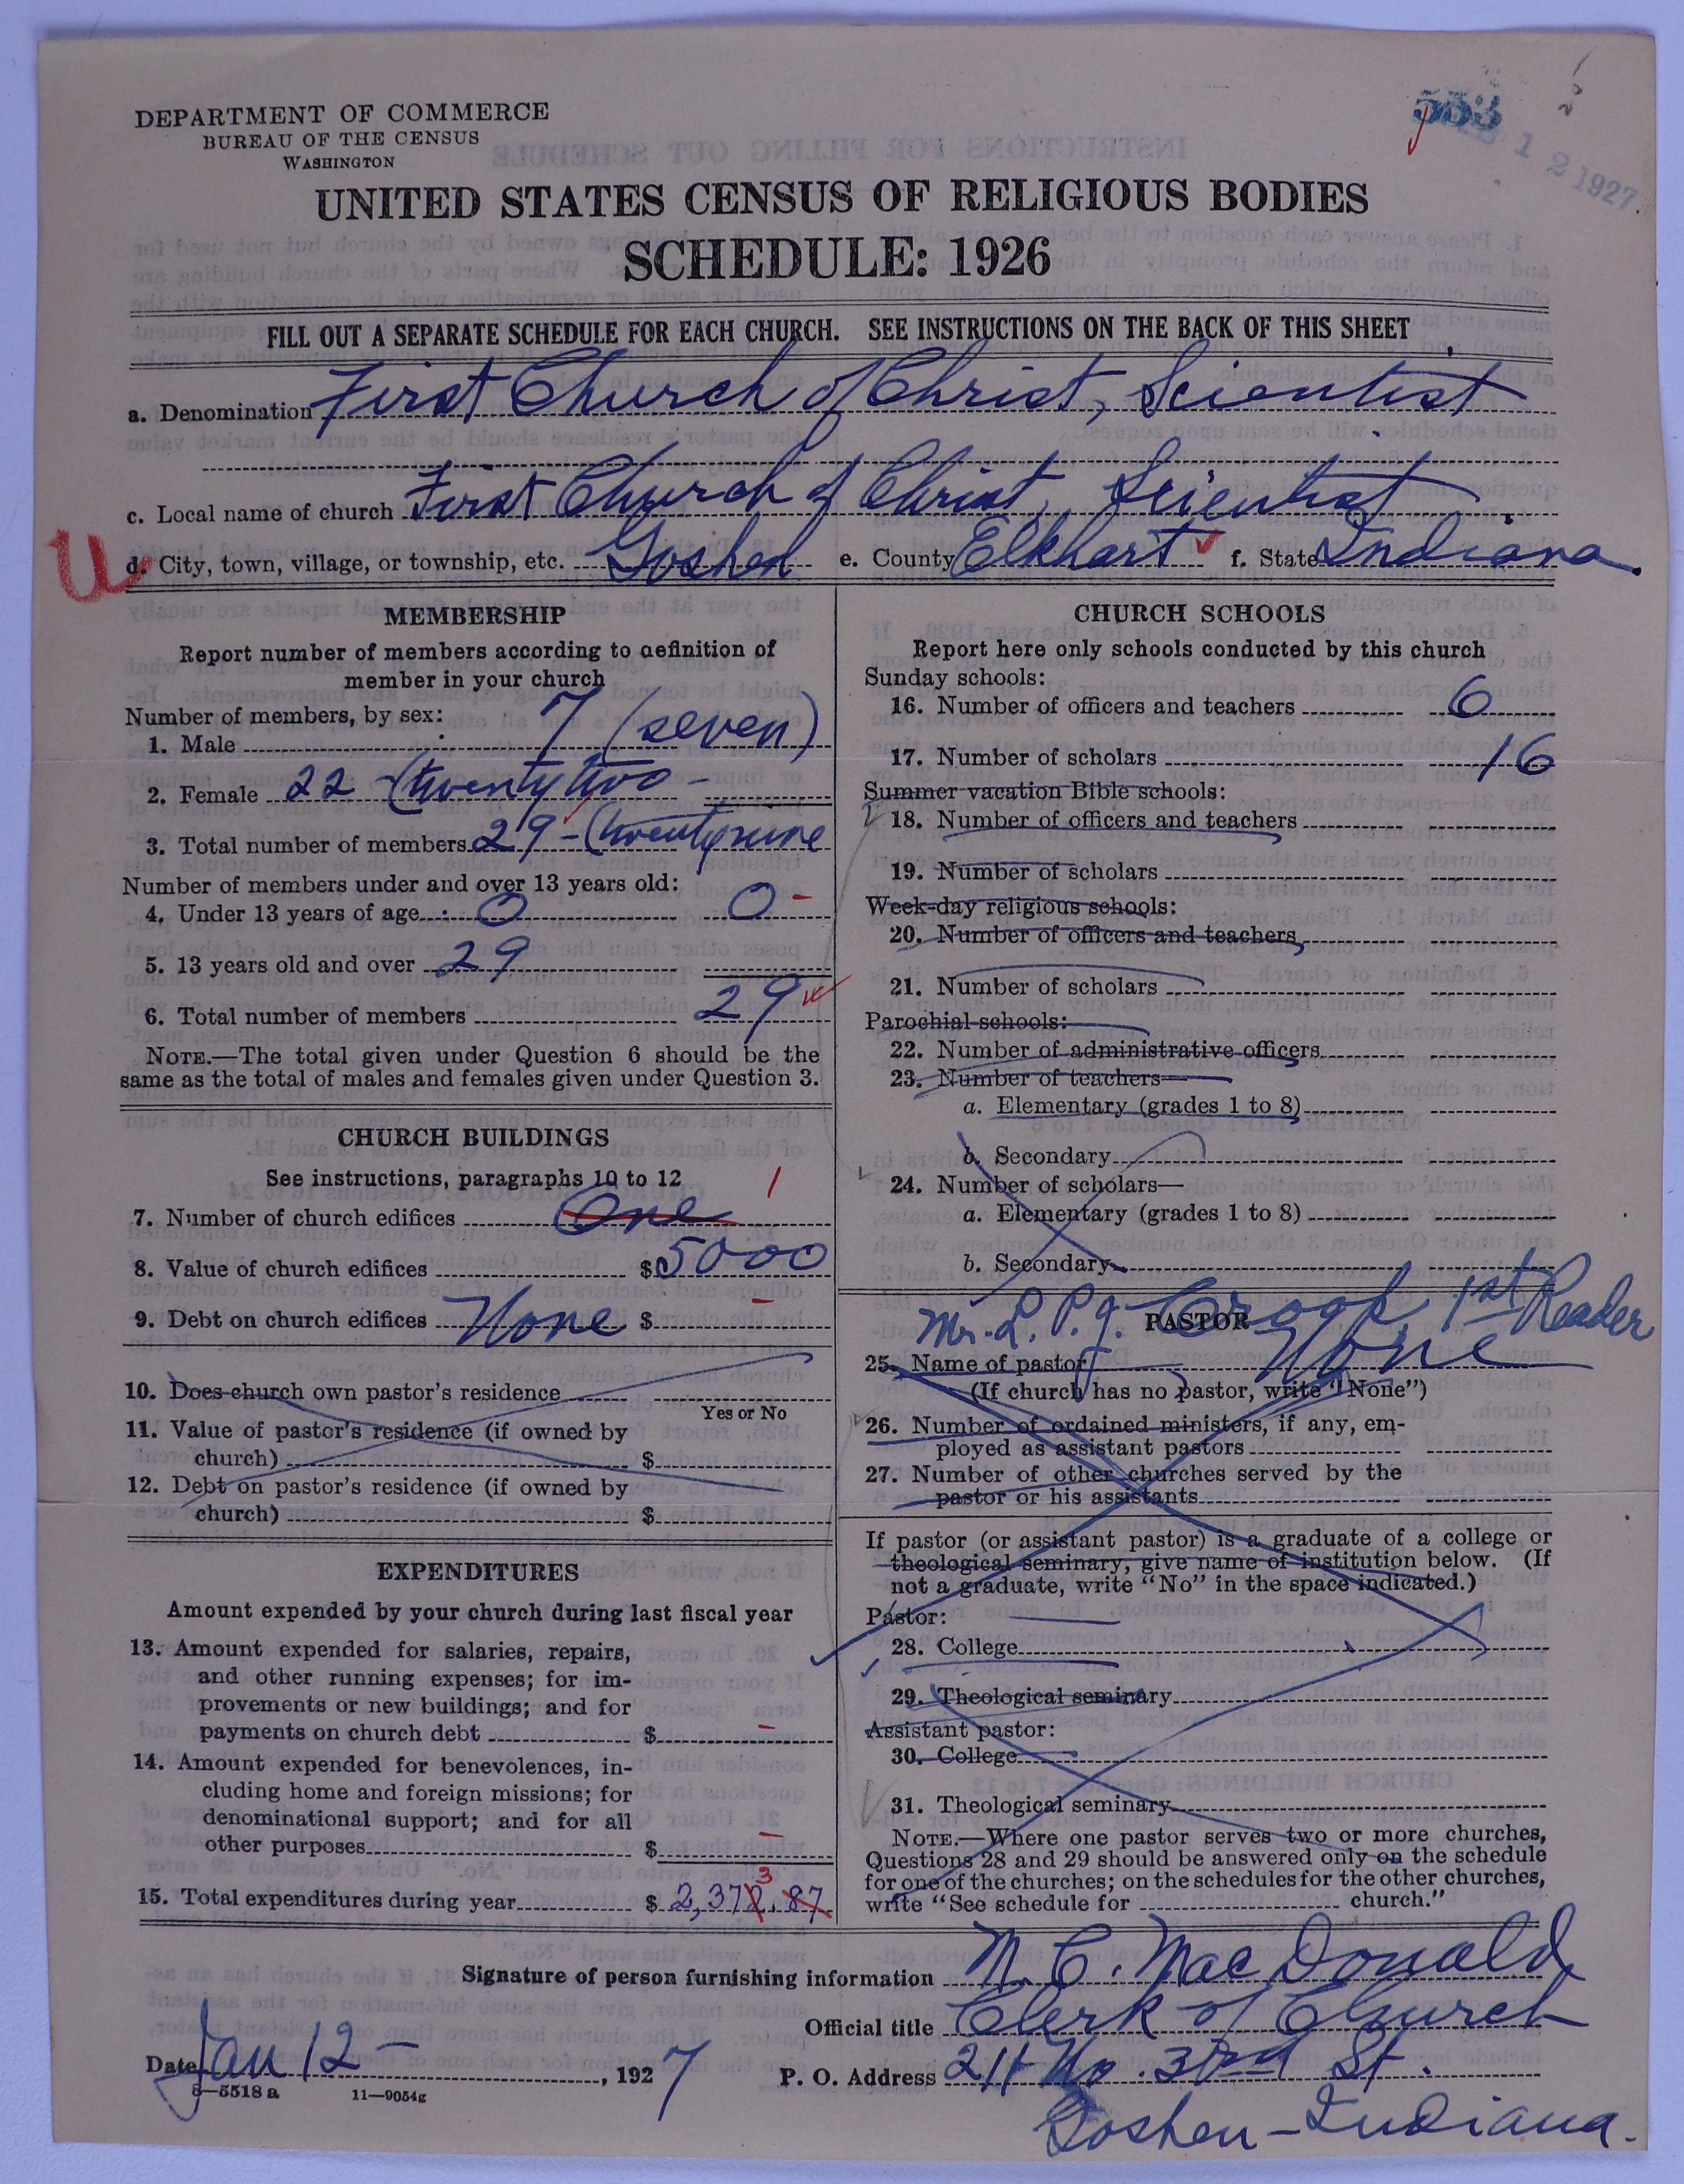 DEPARTMENT OF COMMERCE
BUREAU OF THE CENSUS
WASHINGTON
553
1 2 1927
UNITED STATES CENSUS OF RELIGIOUS BODIES
SCHEDULE: 1926
FILL OUT A SEPARATE SCHEDULE FOR EACH CHURCH. SEE INSTRUCTIONS ON THE BACK OF THIS SHEET
a. Denomination First Church of Christ, Scientist
c. Local name of church First Church of Christ, Scientist
U
d. City, town, village, or township, etc. Goshen e. County Elkhart f. State Indiana.
MEMBERSHIP
Report number of members according to definition of
member in your church
Number of members, by sex:
1. Male 7 (seven)
2. Female 22 - (twenty two -
3. Total number of members 29 - (twenty nine
Number of members under and over 13 years old:
4. Under 13 years of age 0 0 -
5. 13 years old and over 29
6. Total number of members 29
NOTE.—The total given under Question 6 should be the
same as the total of males and females given under Question 3.
CHURCH BUILDINGS
See instructions, paragraphs 10 to 12
7. Number of church edifices One 1
8. Value of church edifices $5000
9. Debt on church edifices None $ -
10. Does church own pastor's residence
Yes or No
11. Value of pastor's residence (if owned by
church) $
12. Debt on pastor's residence (if owned by
church) $
EXPENDITURES
Amount expended by your church during last fiscal year
13. Amount expended for salaries, repairs,
and other running expenses; for im-
provements or new buildings; and for
payments on church debt $ -
14. Amount expended for benevolences, in-
cluding home and foreign missions; for
denominational support; and for all
other purposes $ -
3
15. Total expenditures during year $ 2,372.87
CHURCH SCHOOLS
Report here only schools conducted by this church
Sunday schools:
16. Number of officers and teachers 6
17. Number of scholars 16
Summer vacation Bible schools:
18. Number of officers and teachers
19. Number of scholars
Week-day religious schools:
20. Number of officers and teachers
21. Number of scholars
Parochial schools:
22. Number of administrative officers
23. Number of teachers—
a. Elementary (grades 1 to 8)
b. Secondary
24. Number of scholars—
a. Elementary (grades 1 to 8)
b. Secondary
Mr. L. P. J. Crook 1st Reader
PASTOR
25. Name of pastor None
(If church has no pastor, write "None")
26. Number of ordained ministers, if any, em-
ployed as assistant pastors
27. Number of other churches served by the
pastor or his assistants
If pastor (or assistant pastor) is a graduate of a college or
theological seminary, give name of institution below. (If
not a graduate, write "No" in the space indicated.)
Pastor:
28. College
29. Theological seminary
Assistant pastor:
30. College
31. Theological seminary
NOTE.—Where one pastor serves two or more churches,
Questions 28 and 29 should be answered only on the schedule
for one of the churches; on the schedules for the other churches,
write "See schedule for church."
Signature of person furnishing information M. C. MacDonald
Official title Clerk of Church
Date Jan 12 - , 1927 P. O. Address 211 No. 3rd St.
8—5518 a 11—9054g
Goshen - Indiana.